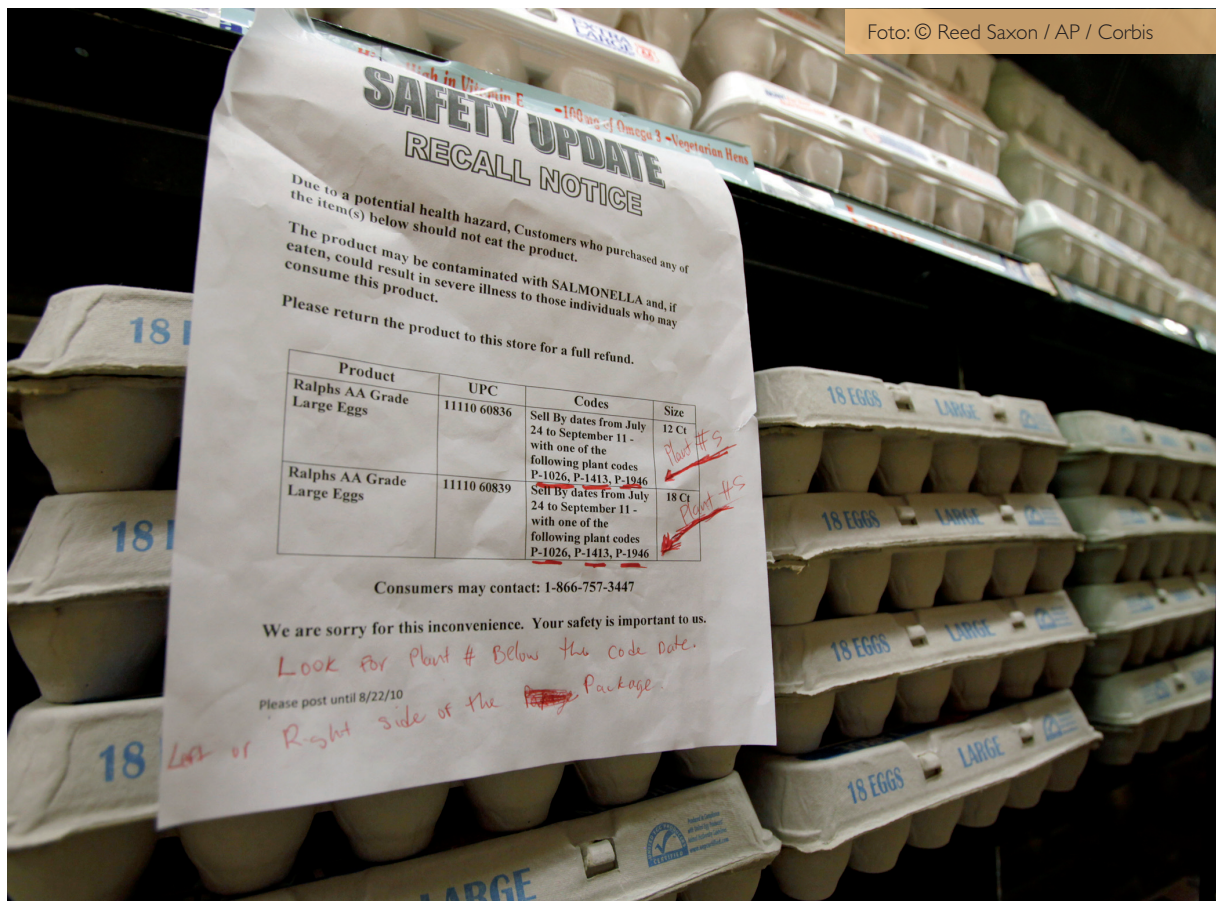 Foto: © Reed Saxon / AP / Corbis
EXTRA
LARGE
High in Vitamin E -100 mg of Omega 3 -Vegetarian Hens
SAFETY UPDATE
RECALL NOTICE
Due to a potential health hazard, Customers who purchased any of
the item(s) below should not eat the product.
The product may be contaminated with SALMONELLA and, if
eaten, could result in severe illness to those individuals who may
consume this product.
Please return the product to this store for a full refund.
Product UPC Codes Size
Ralphs AA Grade
Large Eggs
11110 60836
Sell By dates from July
24 to September 11 -
with one of the
following plant codes
P-1026, P-1413, P-1946
12 Ct
Plant #S
Ralphs AA Grade
Large Eggs
11110 60839
Sell By dates from July
24 to September 11 -
with one of the
following plant codes
P-1026, P-1413, P-1946
18 Ct
Plant #S
Consumers may contact: 1-866-757-3447
We are sorry for this inconvenience. Your safety is important to us.
Look for Plant # Below the code Date.
Please post until 8/22/10
Left or Right side of the Package
18
18
18
18 EGGS LARGE
18 EGGS LARGE
18 EGGS LARGE
18 EGGS LARGE
LARGE
CERTIFIED